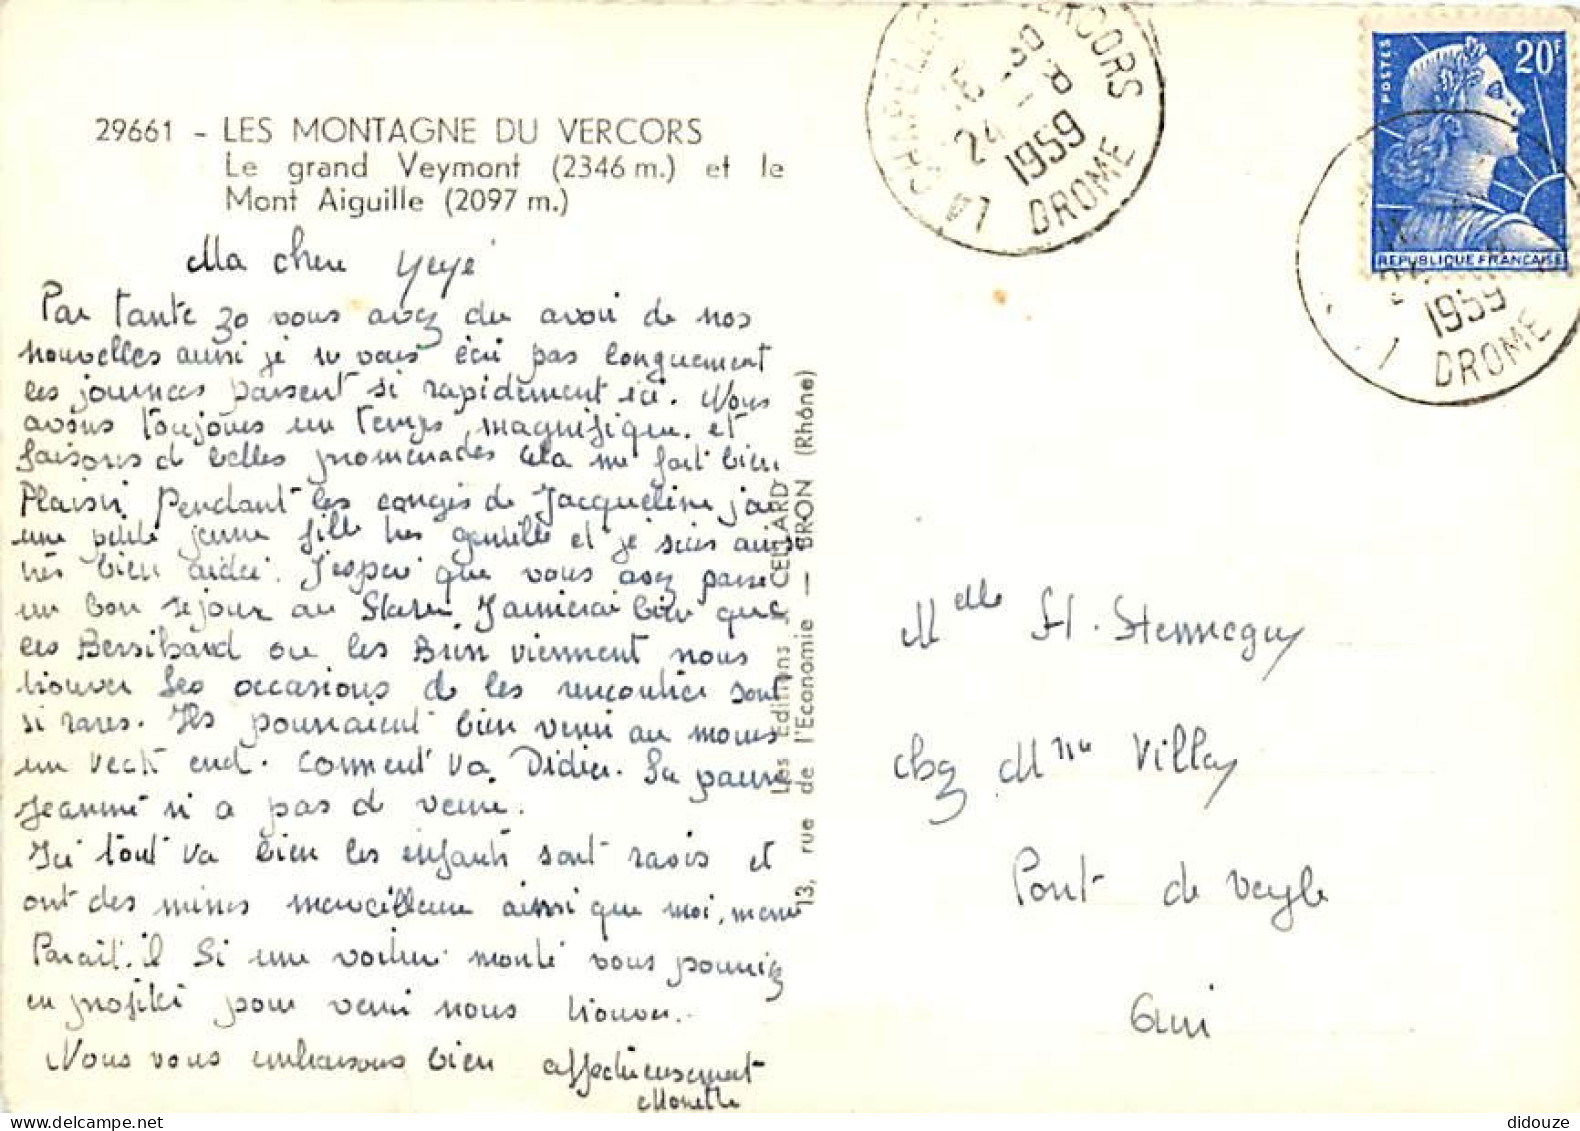 29661 - LES MONTAGNE DU VERCORS
Le grand Veymont (2346 m.) et le
Mont Aiguille (2097 m.)
Ma chere Yéyé
Par tante Zo vous avez du avoir de nos
nouvelles aussi je n vous écri pas longuement
les journees passent si rapidement ici. Nous
avons toujours un temps magnifique. et
faisons d belles promenades cela me fait bien
Plaisir. Pendant les congés de Jacqueline j'ai
une petite jeune fille tres gentille et je suis aussi
très bien aidée. J'espere que vous avez passé
un bon sejour au J'aimerai bien que
les ou les Brun viennent nous
trouver les occasions de les rencontrer sont
si rares. Ils pourraient bien venir au moins
un veek end. Comment va Didier. La pauvre
Jeanne n a pas d veine.
Ici tout va bien les enfants sont ravis et
ont des mines merveilleuse ainsi que moi, meme
Parait.il Si une voiture monte vous pourriez
en profiter pour venir nous trouver.
Nous vous embrassons bien affectueusement
Monette
Les Editions CELLARD
13, rue de l'Economie — BRON (Rhône)
LA CHAPELLE VERCORS
16 30
24 - 8
1959
DROME
20F
POSTES
REPUBLIQUE FRANCAISE
1959
DROME
Melle H. Stenneguy
chez Mme Villay
Pont de Veyle
Ain
didouze